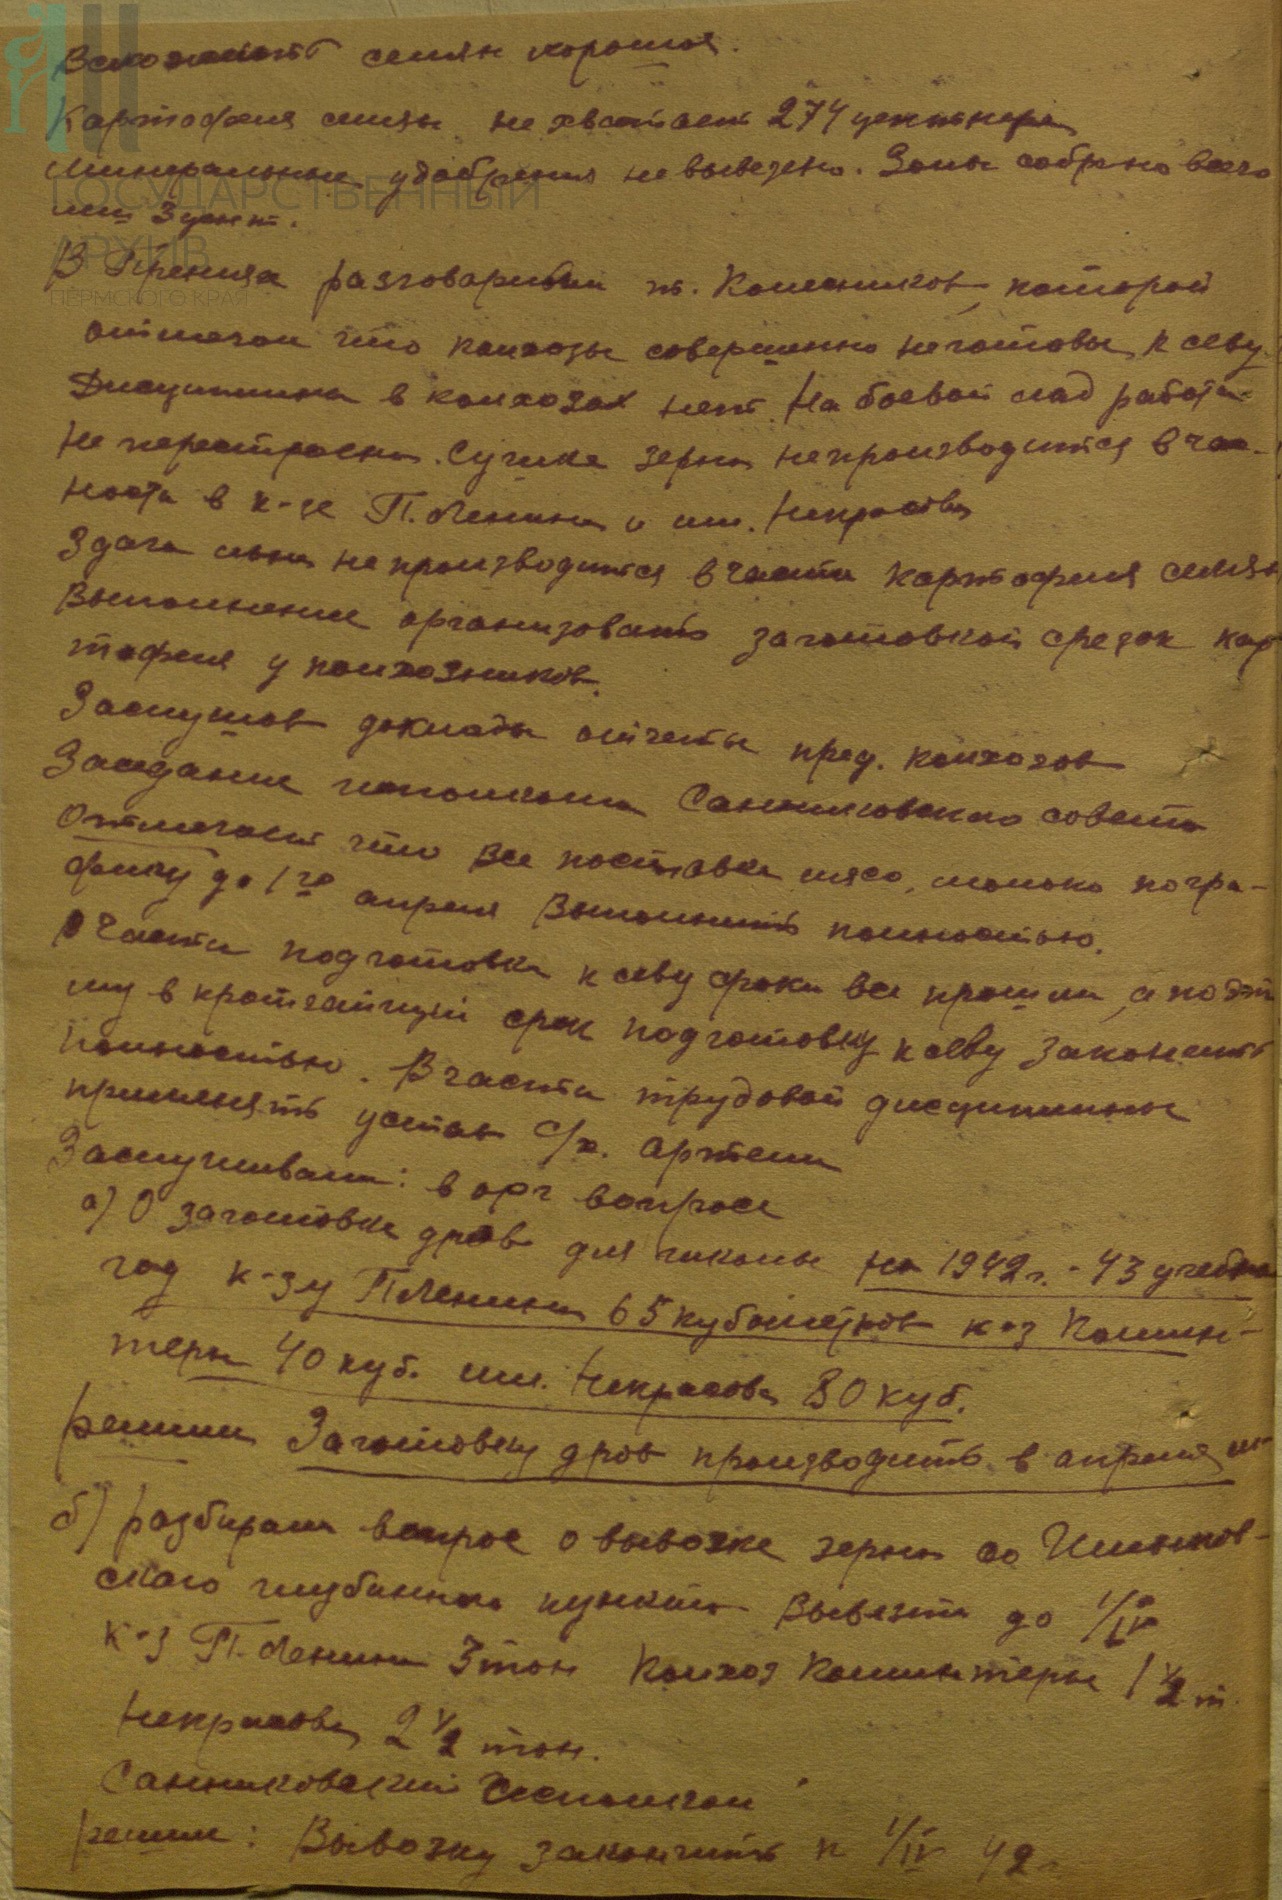 Всхожесть семян хорошая.
Картофеля семян не хватает 274 центнера
Минеральные удобрения не вывезено. Золы собрано всего
3 цент.
ГОСУДАРСТВЕННЫЙ
АРХИВ
ПЕРМСКОГО КРАЯ
В Прениях разговаривали т. который
отмечал что колхозы совершенно неготовы к севу.
Дисциплина в колхозах нет. На боевой лад работа
не перестроена. Сушка зерна непроизводится в час-
ности в к-зе П. Ленина и им. Некрасова
Здача льна непроизводится в части картофеля семян
Выполнение организовать заготовкой срезок кар
тофеля у колхозников.
Заслушов доклады отчеты пред. колхозов
Заседание исполкома Санниковского совета
Отмечает что все поставки мясо, молоко по гра-
фику до 1го апреля Выполнить полностью.
В части подготовки к севу сроки все прошли, а поэт
му в кротчайший срок подготовку к севу закончить
полностью. В части трудовой дисциплины
применять устав с/х. артели
Заслушивали: в орг вопросе
а) О заготовке дров для школы на 1942 г. - 43 учебно
год к-зу П Ленина 65 кубометров к-з Комин-
терн 40 куб. им. Некрасова 80 куб.
решили Заготовку дров производить в апреле м-
б) разбирали вопрос о вывозке зерна со
ского глубинного пункта Вывезти до 1/IV
к-з П. Ленина 3 тон Колхоз Коминтерн 1 1/2 т.
Некрасова 2 1/2 тон.
Санниковский Исполком
решил: Вывозку закончить к 1/IV 42 г